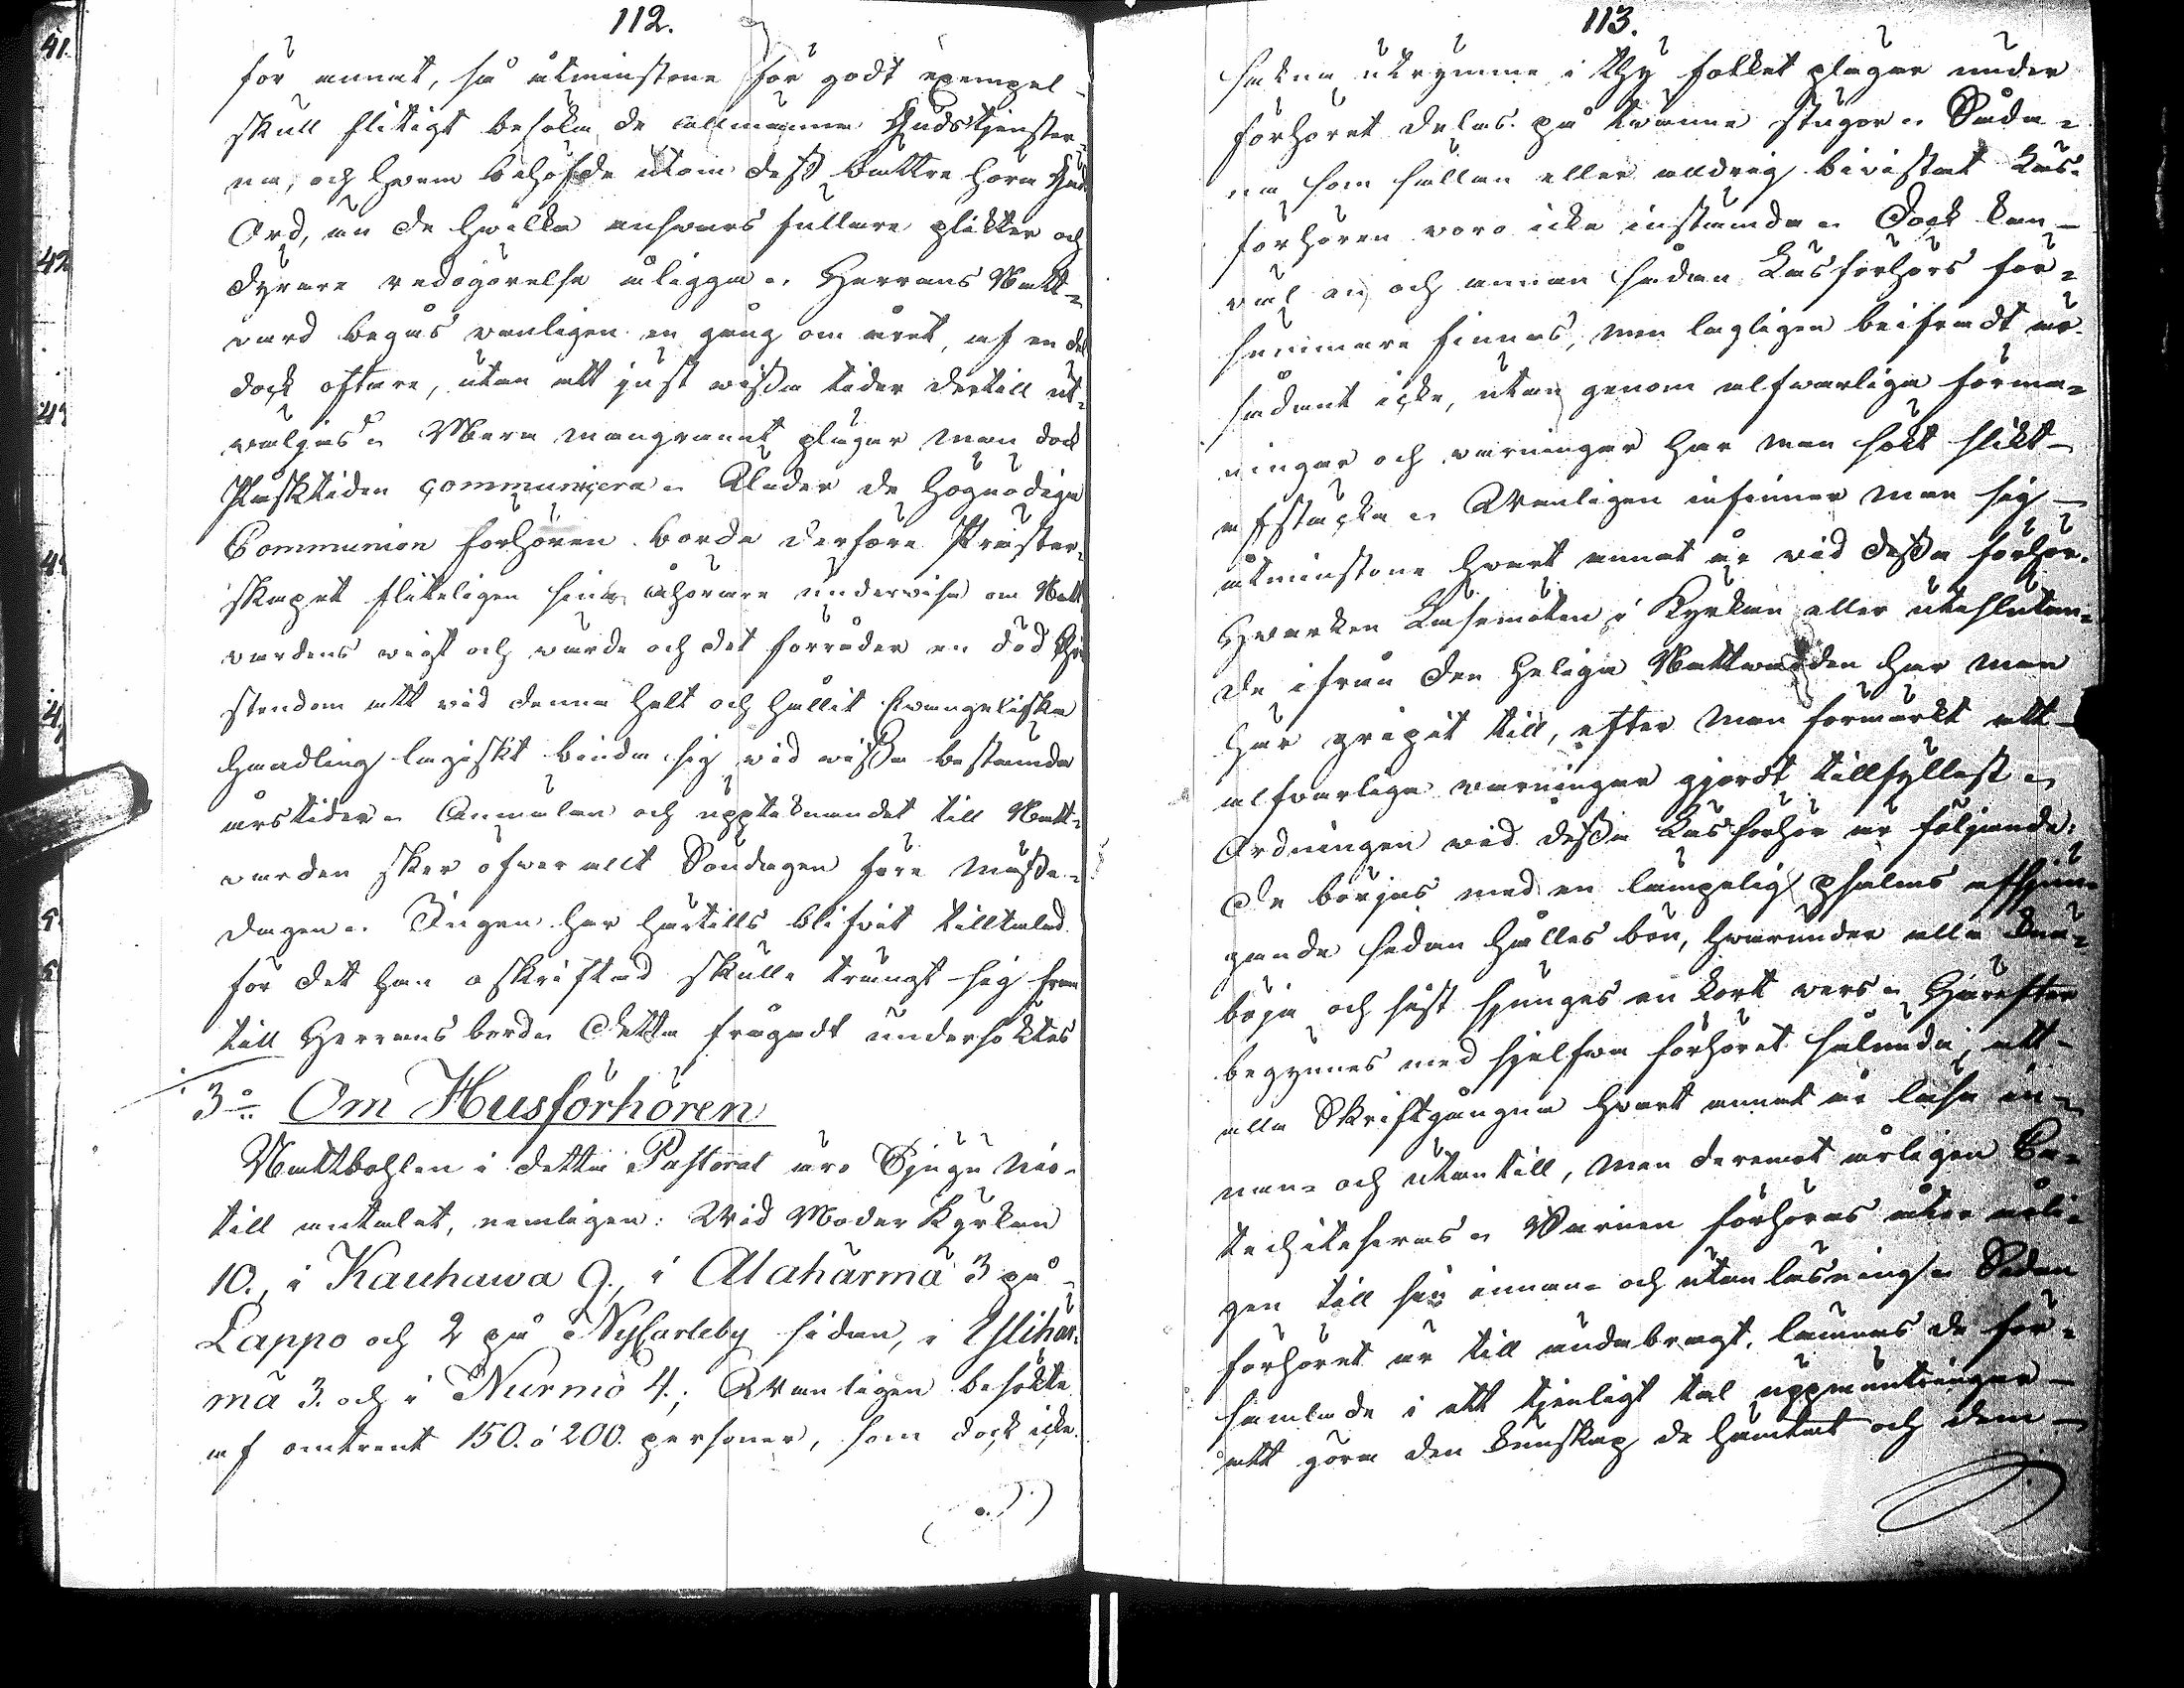 41.
42
112.
för annat, så åtminstone för godt exempel
skull flitigt besöka de allmänna Gudstjenster-
na, och hvem behöfde utom dess bättre höra Guds
Ord, än de hvilka ansvars fullare plikter och
dyrare redogörelse åligga. Herrans Natt-
vard begås vanligen en gång om året, af en del
dock oftare, utan att just wissa tider dertill ut-
väljas. Mera mangrannt plägar man dock
Påsktiden communicera. Under de högnödiga
Communion förhören borde derföre Prester-
skapet fliteligen sina åhörare undervisa om Natt
vardens vigt och värde och det förråder en död Chri
stendom att vid denna helt och hållit Evangeliska
handling lagiskt binda sig vid wissa bestämda
årstider. Anmälan och upptecknandet till Natt-
varden sker öfwerallt Söndagen före Messe-
dagen. Ingen har härtills blifvit tilltalad
för det han oskriftad skulle trängt sig fram
till Herrans bord. Detta frågadt undersöktes
3:o Om Husförhören
Mattbohlen i detta Pastorat äro Tjugu nio
till antalet, nemligen: Wid Moder Kyrkan
10., i Kauhawa 9., i Alahärmä 3 på
Lappo och 2 på NyCarleby sidan, i Ylihär-
mä 3. och i Nurmo 4.; Wanligen besökte
af omtrent 150. á 200. personer, som dock icke
113.
sakna utrymme i thy folket plägar under
förhöret delas på tvänne stugor. Såda-
na som sällan eller aldrig bivistat Läs-
förhören voro icke instämda. Dock kan
väl en och annan sådan Läsförhörs för-
summare finnas, men lagligen beifradt är
sådant icke, utan genom alfwarliga förma-
ningar och varningar har man sökt slikt
afstäcka. Wanligen infinner man sig
åtminstone hvart annat år vid dessa förhör.
Hvarken Läsemöten i Kyrkan eller uteslutan-
de ifrån den heliga Nattwarden har man
här gripit till, efter man förmärkt att
alfvarliga varningar gjordt tillfyllest.
Ordningen vid dessa Läsförhör är följande:
De börjas med en lämpelig psalms afsjun-
gande sedan hålles bön, hvarunder alla knä-
böja och sist sjunges en kort vers. Härefter
begynnes med sjelfwa förhöret sålunda, att
alla Skriftgångna hvart annat år läsa in-
nan- och utantill, men deremot årligen Ca-
techiseras. Barnen förhöras åter årli-
gen till sin innan- och utanläsning. Sedan
förhöret är till ända bragt, lämnas de för-
samlade i ett tjenligt tal uppmuntringar
att göra den kunskap de hämtat och dem